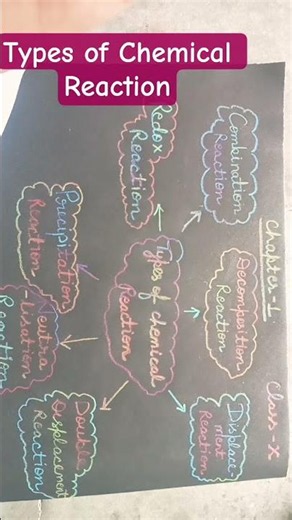 Types of Chemical
Reaction
Chapter-1
Class-X
Combination
Reaction
Redox
Reaction
Decomposition
Reaction
Types of chemical
Reaction
Precipitation
Reaction
Neutra
-lisation
Reaction
Displace-
ment
Reaction
Double
Displacement
Reaction